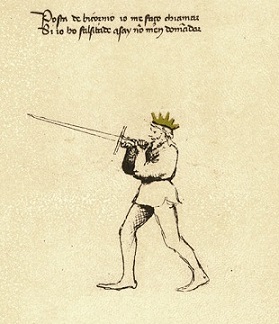 Posta de bicornio io me faço chiamar
Si io ho falsitade asay nõ men domãdar